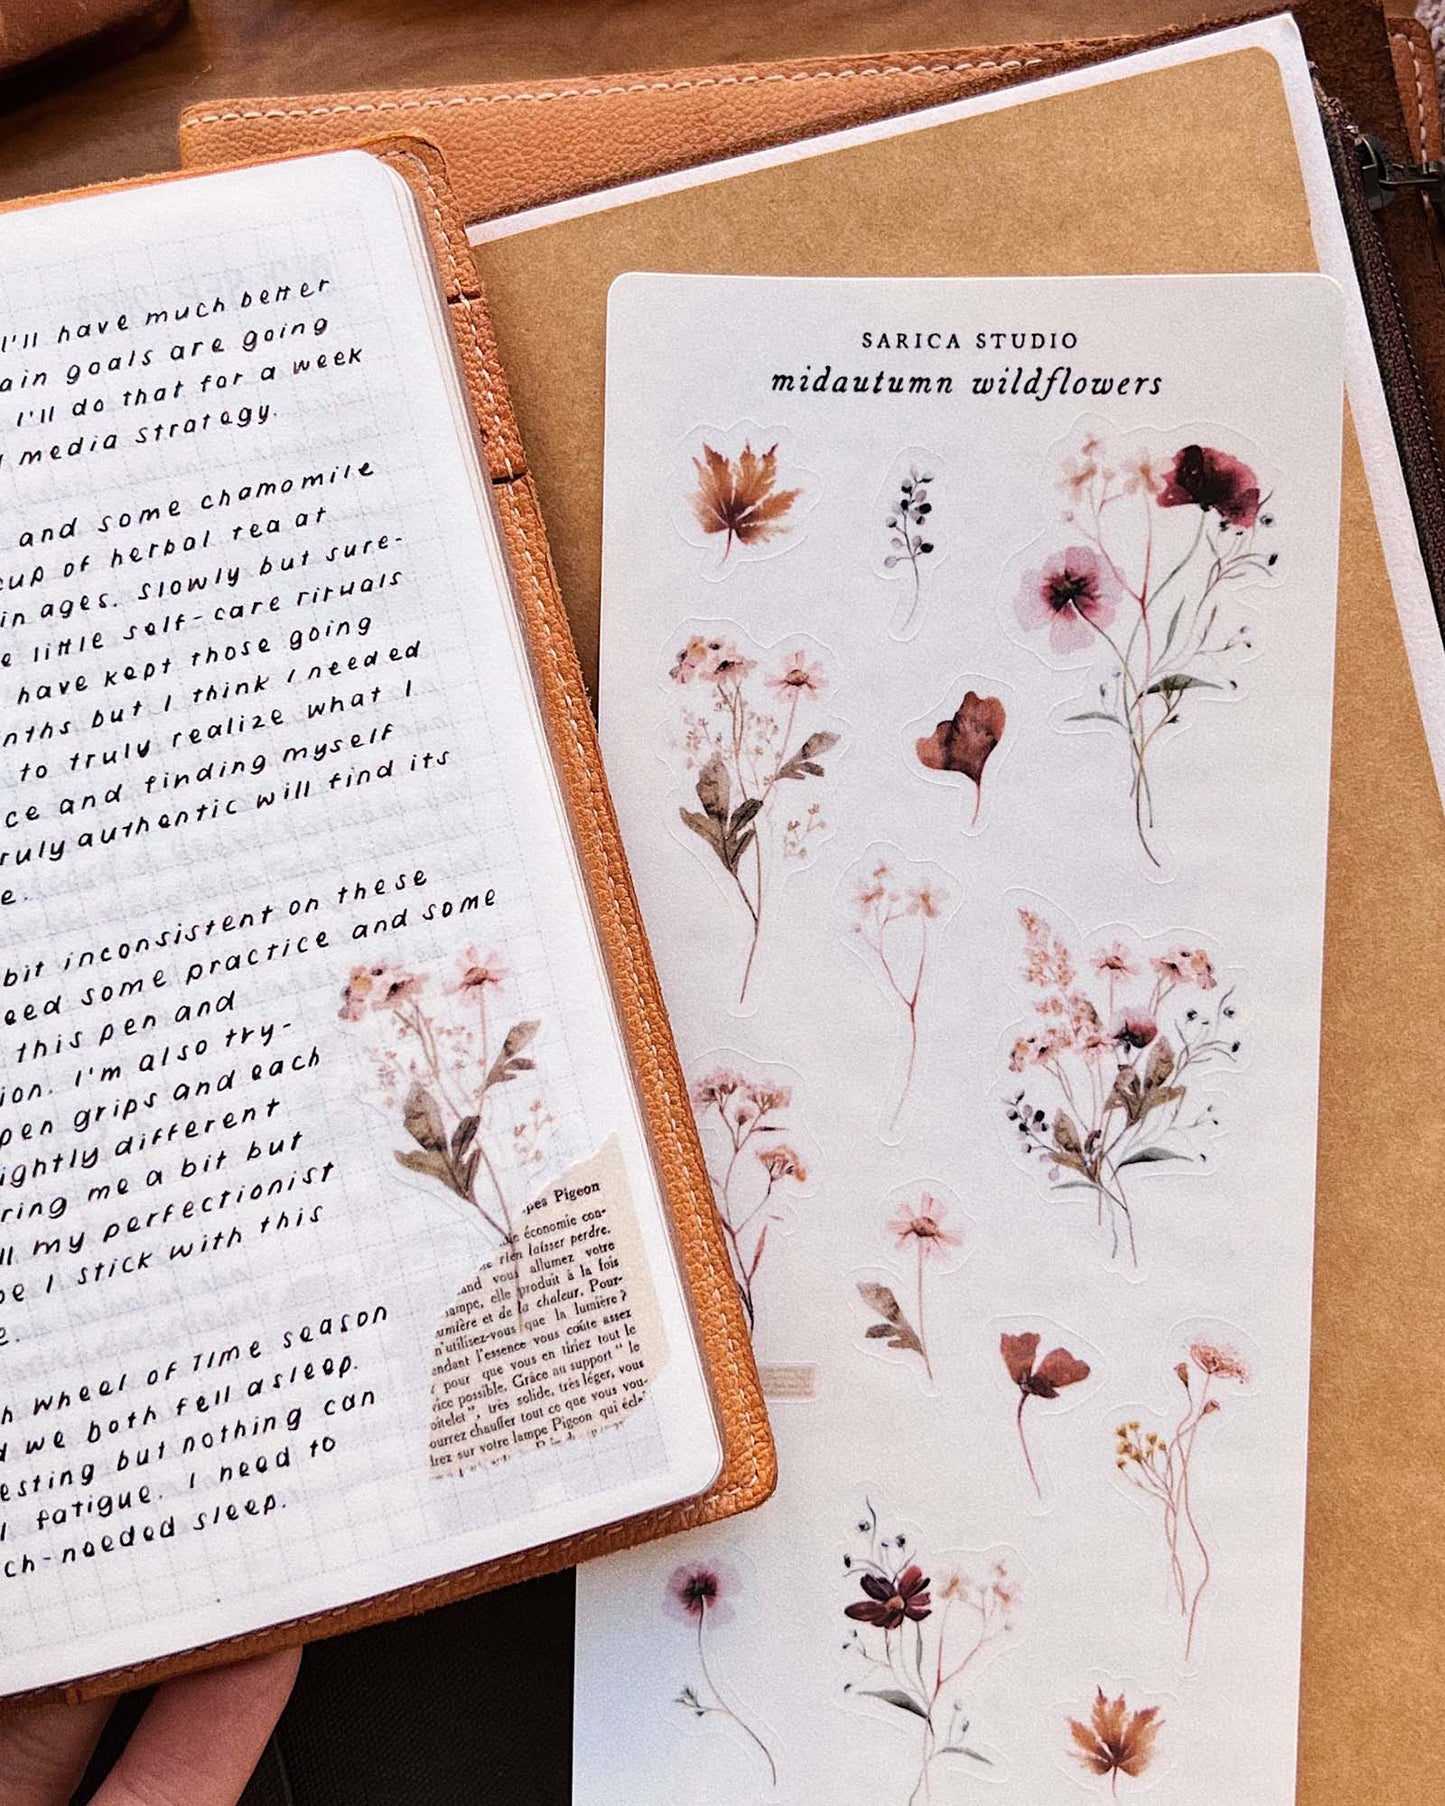 I'll have much better
ain goals are going
I'll do that for a week
media strategy.
and some chamomile
cup of herbal tea at
in ages. Slowly but sure-
e little self-care rituals
have kept those going
nths but I think I needed
to truly realize what I
ce and finding myself
ruly authentic will find its
e.
bit inconsistent on these
eed some practice and some
this pen and
ion. I'm also try-
pen grips and each
ightly different
ring me a bit but
ll my perfectionist
be I stick with this
e.
h Wheel of Time season
d we both fell asleep.
esting but nothing can
l fatigue. I need to
ch-needed sleep.
pes Pigeon
économie con-
rien laisser perdre.
and vous allumez votre
ampe, elle produit à la fois
umière et de la chaleur. Pour-
n'utilisez-vous que la lumière ?
endant l'essence vous coûte assez
pour que vous en tiriez tout le
vice possible. Grâce au support " le
oitelet ", très solide, très léger, vous
ourrez chauffer tout ce que vous vou-
drez sur votre lampe Pigeon qui écl
SARICA STUDIO
midautumn wildflowers